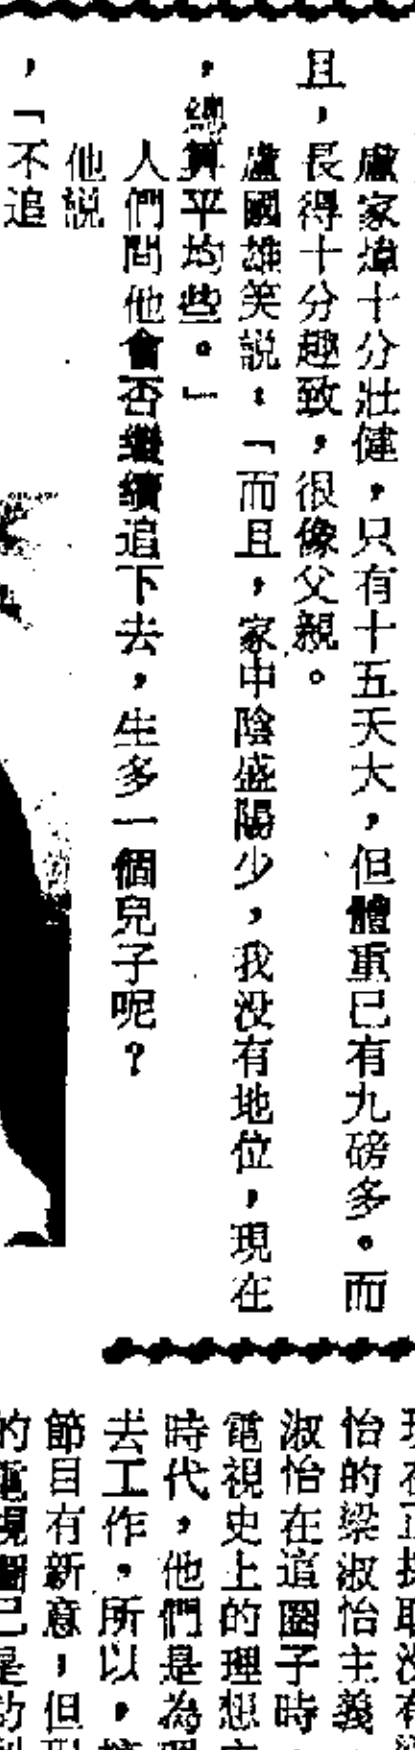 盧家煒十分壯健，只有十五天大，但體重已有九磅多。而
且，長得十分趣致，很像父親。
盧國雄笑説：「而且，家中陰盛陽少，我没有地位，現在
，總算平均些。」
人們問他會否繼續追下去，生多一個兒子呢？
他説
，「不追
怡的梁淑怡主義
淑怡在這圈子時
電視史上的理想
時代，他們是為
去工作，所以，
節目有新意，但